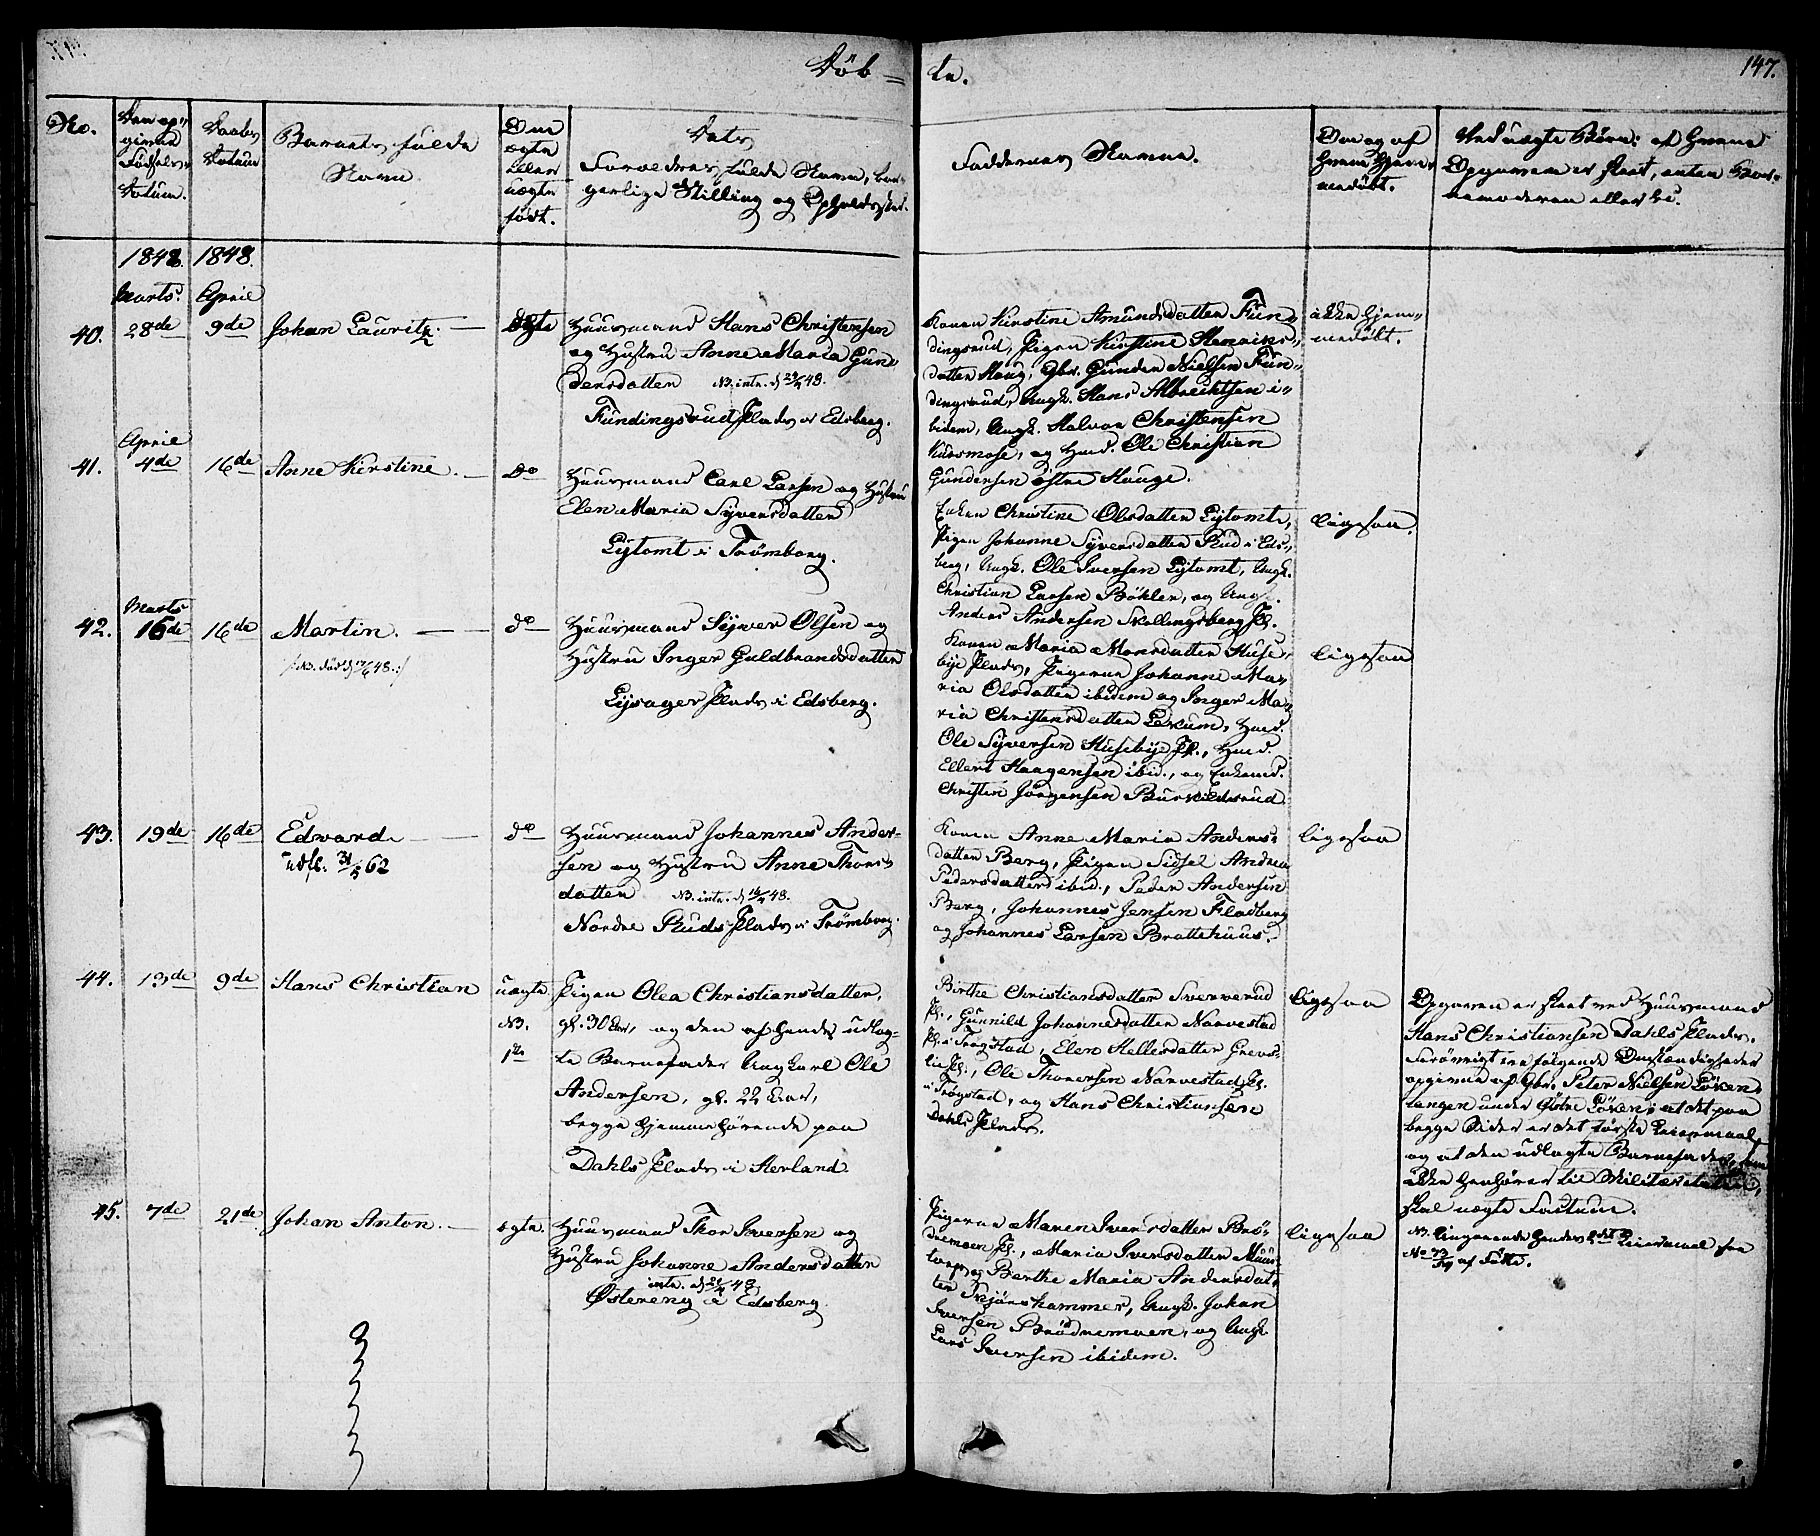 Döb-
te.
147.
No.
Den op-
givne
Fødsels-
Datum.
Daabs
Datum
Barnets fulde
Navn
Om
ægte
eller
uægte
født.
Dets
Forældres fulde Navne, bor-
gerlige Stilling og Opholdssted.
Faddernes Navne.
Om og af
hvem hjem-
medøbt.
Ved uægte Børn: af hvem
Opgaven er skeet, enten Bar-
nemoderen eller
1848. 1848.
Marts. April
40. 28de 9de Johan Lauritz. ægte
Huusmand Hans Christensen
og Hustru Anne Maria Gun-
dersdatten NB. intr. d 24/4 48.
Fundingsrud Plads i Edsberg.
Konen Kirstine Amundsdatten Fun-
dingsrud, Pigen Kirstine Henriks-
datten Haug, Gbr. Gunder Nielsen Fun-
dingsrud, Ungk. Hans Albrechtsen i-
bidem, Ungk. Halvor Christensen
Kursmose, og Huusmd. Ole Christian
Gundersen østre Hauge.
ikke hjem-
medøbt.
April
41. 4de 16de Anne Kirstine. Do
Huusmand Carl Larsen og Hustru
Elen Maria Syversdatten
Lytomt i Trømborg.
Enken Christine Olsdatten Lytomt,
Pigen Johanne Syversdatten Rud i Eds-
berg, Ungk. Ole Iversen Lytomt, Ungk.
Christian Larsen Böhler, og Ungk.
Anders Andersen Skellingsberg Pl.
ligesaa.
Marts
42. 16de 16de Martin. do
Huusmand Syver Olsen og
Hustru Inger Guldbrandsdatten
Lysager Plads i Edsberg.
Konen Maria Monsdatten Huse-
bye Plads, Pigerne Johanne Ma-
ria Olsdatten ibidem og Inger Ma-
ria Christensdatten Lekum, Huusmd.
Ole Syversen Husebye Pl., Huusmd.
Ellert Haagensen ibid., og Enkemd.
Christen Jörgensen Buskildsrud
ligesaa
43. 19de 16de Edvard do
udfl. 31/5 62
Huusmand Johannes Ander-
sen og Hustru Anne Thors-
datten NB. intr. d 16/4 48.
Nordre Ruds Plads i Trømborg.
Konen Anne Maria Anders-
datten Berg, Pigen Sidsel Andrea
Pedersdatter ibid., Peder Andersen
Berg, Johannes Jensen Fladberg
og Johannes Larsen Brattehuus.
ligesaa
44. 13de 9de Hans Christian uægte.
NB.
1ste
Pigen Olea Christiansdatter,
gl. 30 Aar, og den af hende udlag-
te Barnefader Ungkarl Ole
Andersen, gl. 22 Aar,
begge hjemmehørende paa
Dahls Plads i Herland
Birthe Christiansdatter Sververud
Pl., Gunnild Johannesdatter Narvestad
Pl. i Trøgstad, Elen Hellesdatter Grevs-
lie Pl., Ole Thoresen Narvestad Pl.
i Trøgstad, og Hans Christiansen
Dahls Plads.
ligesaa
Opgaven er skeet ved Huusmand
Hans Christiansen Dahls Plads.
Forøvrigt ere følgende Omstændigheder
opgivne af Gbr. Peter Nielsen Löken-
langen under Østre Löken: at det paa
begge Sider er det første Leiermaal
og at den udlagte Barnefader, som
ikke henhører til Militæretaten,
skal nægte Factum.
NB. Angaaende hendes 2det Leiermaal see
No 73/49 af Døbte.
45. 7de 21de Johan Anton. ægte.
Huusmand Thor Iversen og
Hustru Johanne Andersdatten
intr. d 21/4 48
Østereng i Edsberg.
Pigerne Maren Iversdatter Brö-
demoen Pl., Maria Iversdatten Muus-
torp og Berthe Maria Andersdat-
ter Skjönhammer, Ungk. Johan
Iversen Brødremoen, og Ungk.
Lars Iversen ibidem.
ligesaa